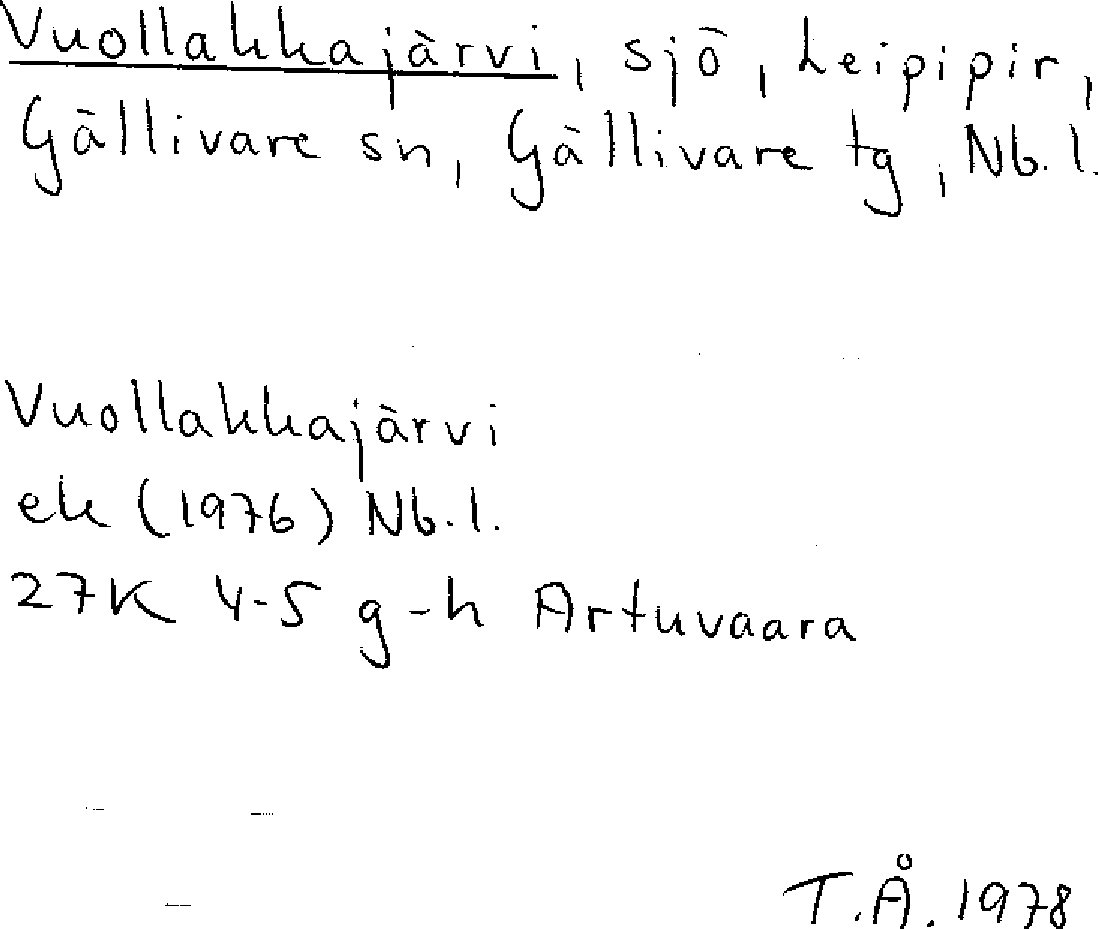 Vuollakkajärvi, sjö, Leipipir,
Gällivare sn, Gällivare tg, Nb.l.
Vuollakkajärvi
ek (1976) Nb.l.
27K 4-5 g-h Artuvaara
T.Å. 1978